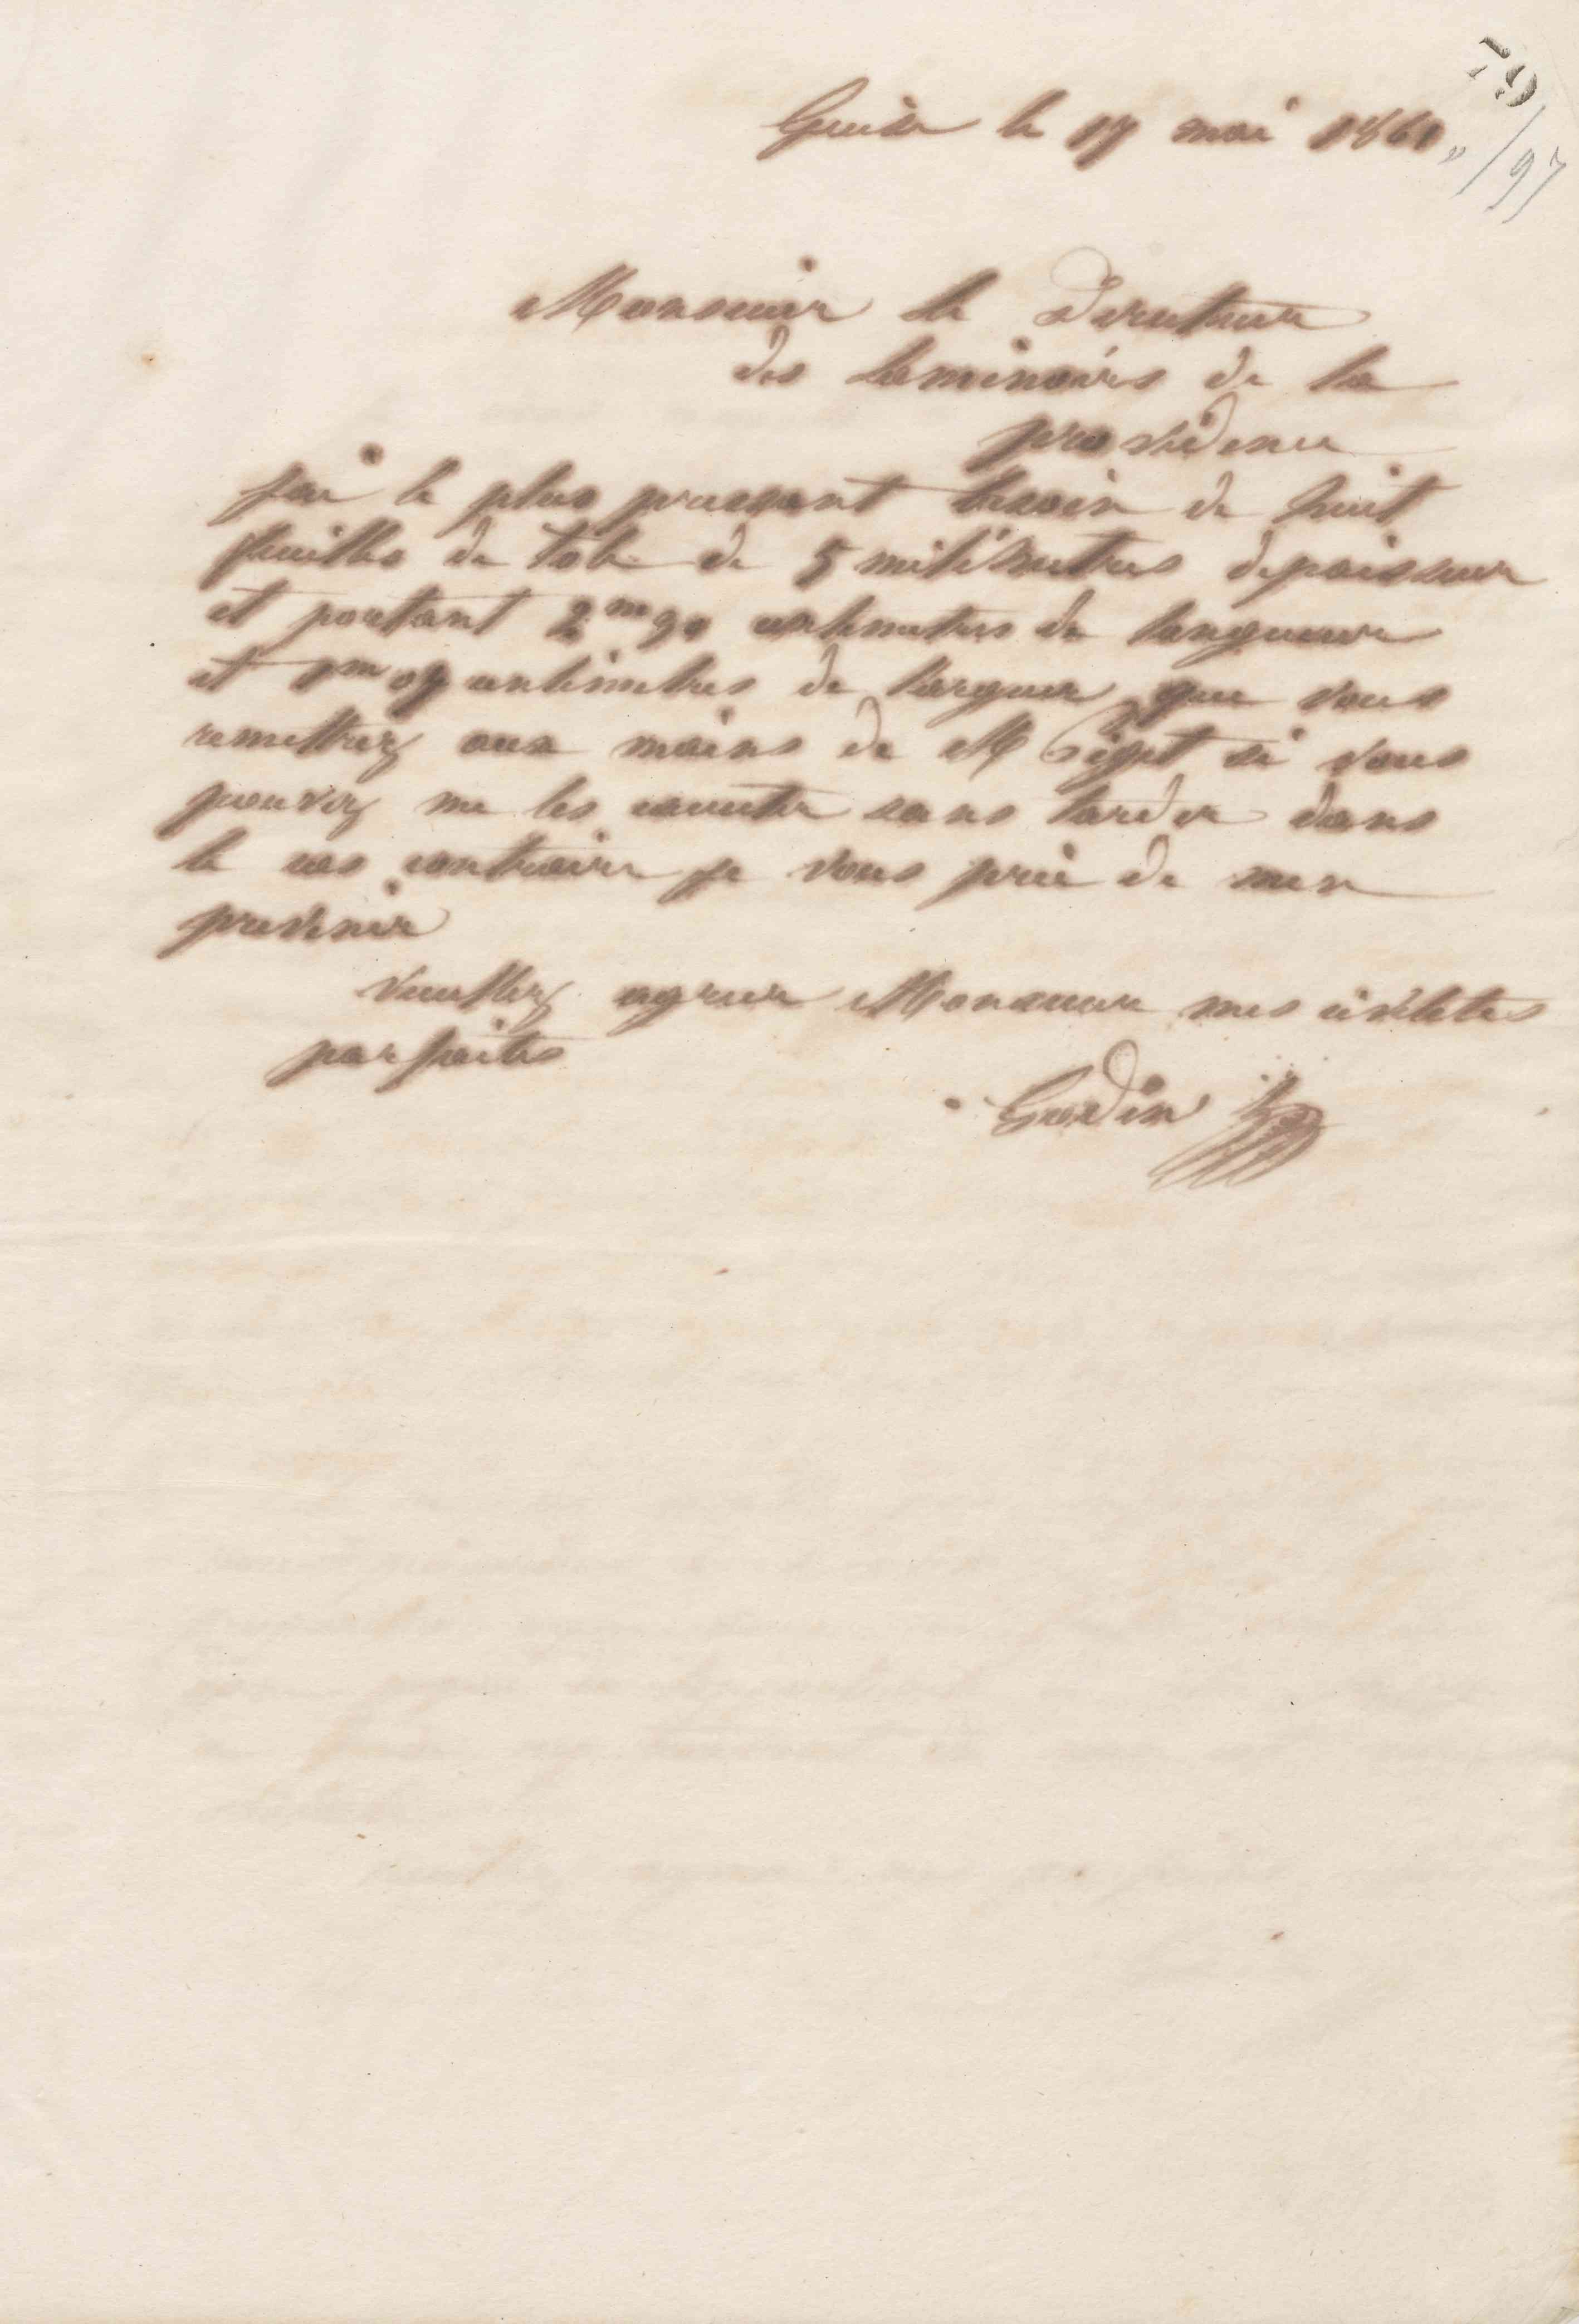 79
/97
Guise le 17 mai 1861
Monsieur le Directeur
des laminoirs de la
providence
J'ai le plus pressant besoin de huit
feuilles de tole de 5 milimetres depaisseur
et portant 2m 90 centimetres de longueur
et 1m 07 centimetres de largeur que vous
remettrez aux mains de M si vous
pouvez me les ceder sans tarder dans
le cas contraire je vous prie de men
prevenir
veuillez agreer Monsieur mes civilites
parfaites
Godin